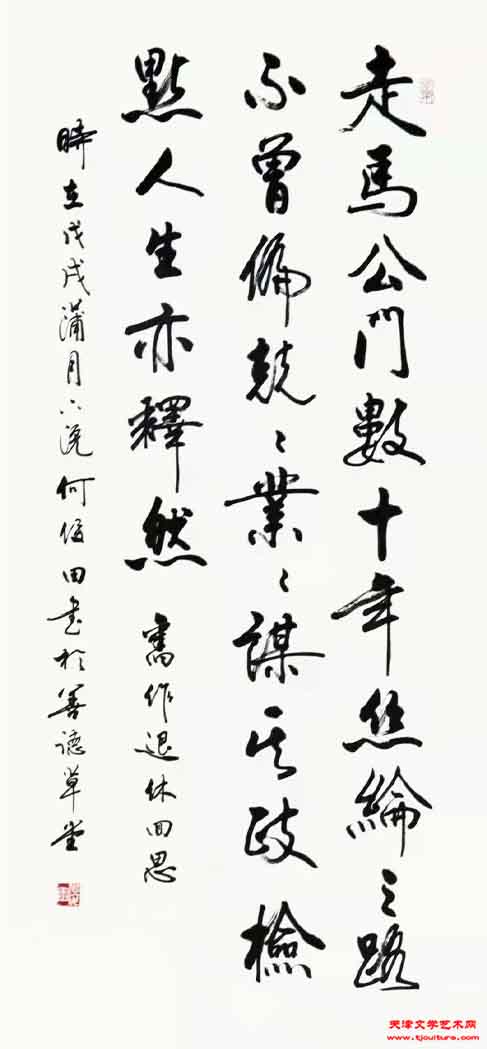 走馬公門數十年丝綸之路
不曾偏兢〻業〻謀其政檢
點人生亦釋然 舊作退休回思
時在戊戌蒲月下浣何俊田書於善德草堂
天津文学艺术网
www.tjculture.com